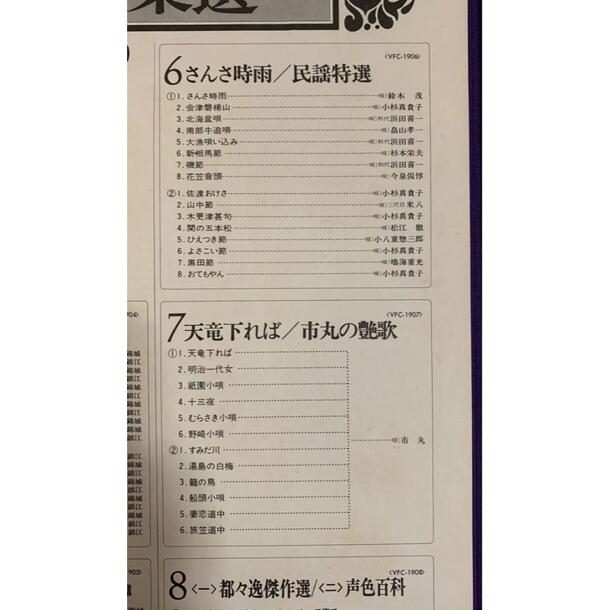 〈VFC-1906〉
6さんさ時雨／民謡特選
①1.さんさ時雨 唄鈴木 茂
2.会津磐梯山 唄小杉真貴子
3.北海盆唄 唄初代浜田喜一
4.南部牛追唄 唄畠山孝一
5.大漁唄い込み 唄初代浜田喜一
6.新相馬節 唄杉本栄夫
7.磯節 唄初代浜田喜一
8.花笠音頭 唄今泉侃惇
②1.佐渡おけさ 唄小杉真貴子
2.山中節 唄三代目米八
3.木更津甚句 唄小杉真貴子
4.関の五本松 唄松江 徹
5.ひえつき節 唄小八重惣三郎
6.よさこい節 唄小杉真貴子
7.黒田節 唄鳴海重光
8.おてもやん 唄小杉真貴子
〈VFC-1907〉
7天竜下れば／市丸の艶歌
①1.天竜下れば
2.明治一代女
3.祇園小唄
4.十三夜
5.むらさき小唄
6.野崎小唄
唄市 丸
②1.すみだ川
2.湯島の白梅
3.籠の鳥
4.船頭小唄
5.妻恋道中
6.旅笠道中
〈VFC-1908〉
8〈一〉都々逸傑作選/〈二〉声色百科